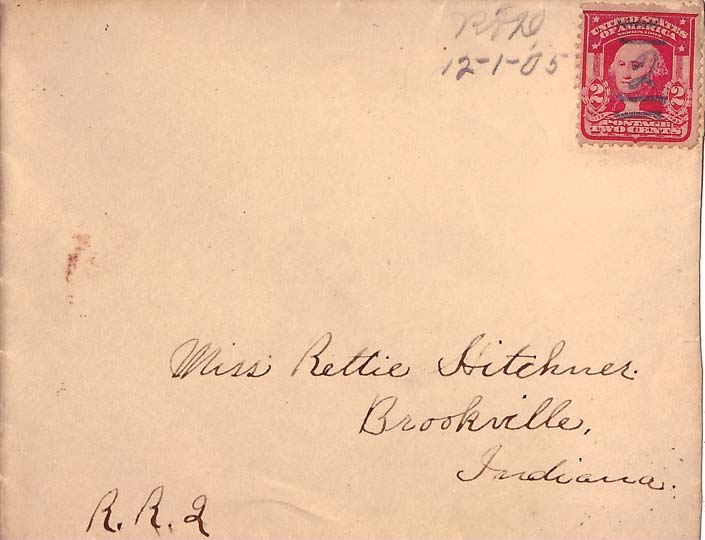 RFD
12-1-05
UNITED STATES
OF AMERICA
SERIES 1902
2 2
WASHINGTON
POSTAGE
TWO CENTS
Miss Rettie Hitchner.
Brookville,
Indiana.
R. R. 2